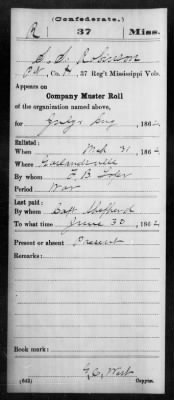 (Confederate.)
R 37 Miss.
S. S. Robinson
Pvt, Co. H, 37 Reg't Mississippi Vols.
Appears on
Company Muster Roll
of the organization named above,
for July & Aug, 1862
Enlisted:
When Mch 31, 1862
Where Garlandsville
By whom E. B. Loper
Period War
Last paid:
By whom Capt Shepherd
To what time June 30, 1862
Present or absent Present
Remarks:
Book mark:
G. C. West
(642) Copyist.